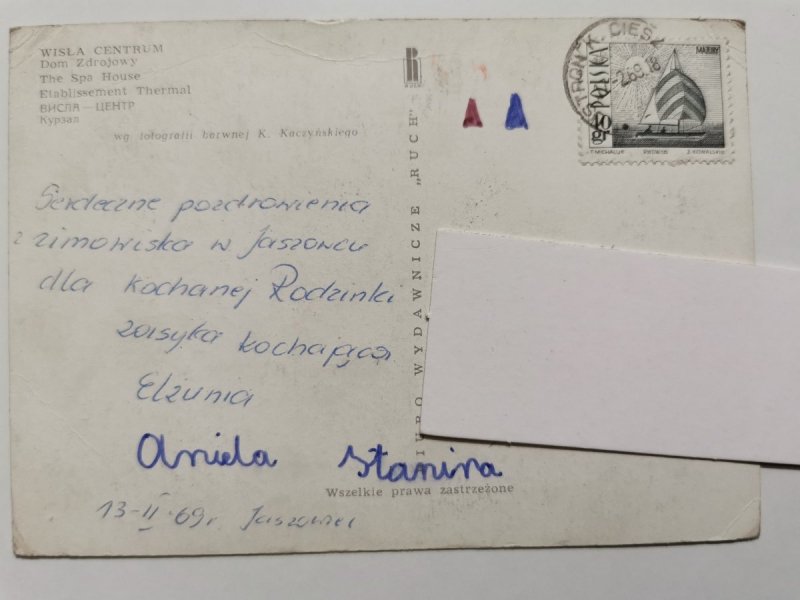 WISŁA CENTRUM
Dom Zdrojowy
The Spa House
Etablissement Thermal
ВИСЛА — ЦЕНТР
Курзал
wg fotografii barwnej K. Kaczyńskiego
Serdeczne pozdrowienia
z zimowiska w Jaszowcu
dla kochanej Rodzinki
zasyła kochająca
Elżunia
Aniela Stanina
13-II-69r. Jaszowiec
BIURO WYDAWNICZE „RUCH"
R
RUCH
Wszelkie prawa zastrzeżone
POLSKA
40 gr
MAZURY
T. MICHALUK PWPW 66 Z. KOWALSKI
USTROŃ K. CIESZ